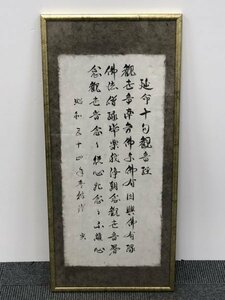 延命十句觀音経
觀世音南無佛與佛有因與佛有縁
佛法僧縁常樂我浄朝念觀世音暮
念觀世音念々從心起念々不離心
昭和五十四年